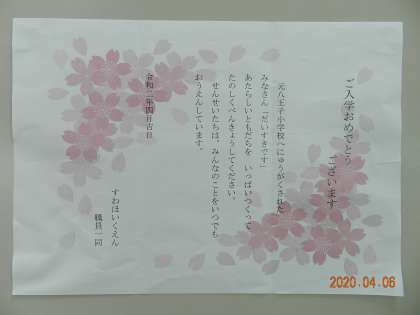 ご入学おめでとう
ございます
元八王子小学校へにゅうがくされた
みなさん「だいすきです」
あたらしいともだちを いっぱいつくって
たのしくべんきょうしてください。
せんせいたちは、みんなのことをいつでも
おうえんしています。
令和二年四月吉日
すわほいくえん
職員一同
2020.04.06